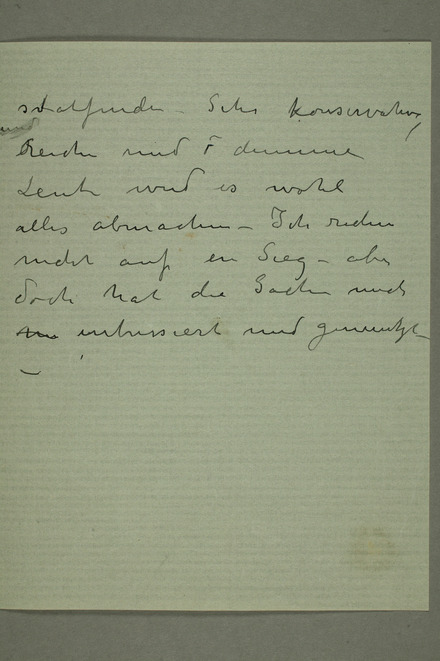 stattfinden – Sehr konservativ,
und
Reiche und r dumme
Leute wird es wohl
alles abmachen – Ich rechne
nicht auf en Sieg – aber
doch hat die Sache mich
interessiert und genützt –